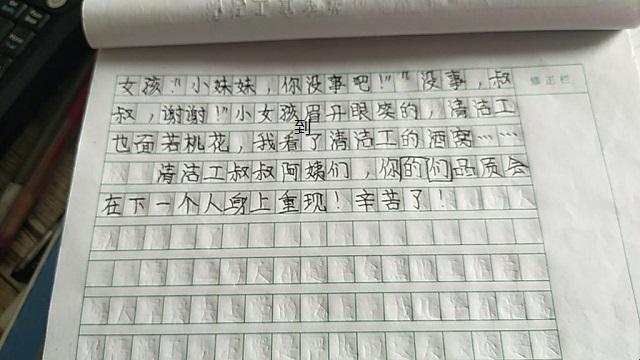 女孩："小妹妹，你没事吧！""没事，叔
叔，谢谢！"小女孩眉开眼笑的，清洁工
到
也面若桃花，我看了清洁工的酒窝……
清洁工叔叔阿姨们，你的们品质会
在下一个人身上重现！辛苦了！
修正栏